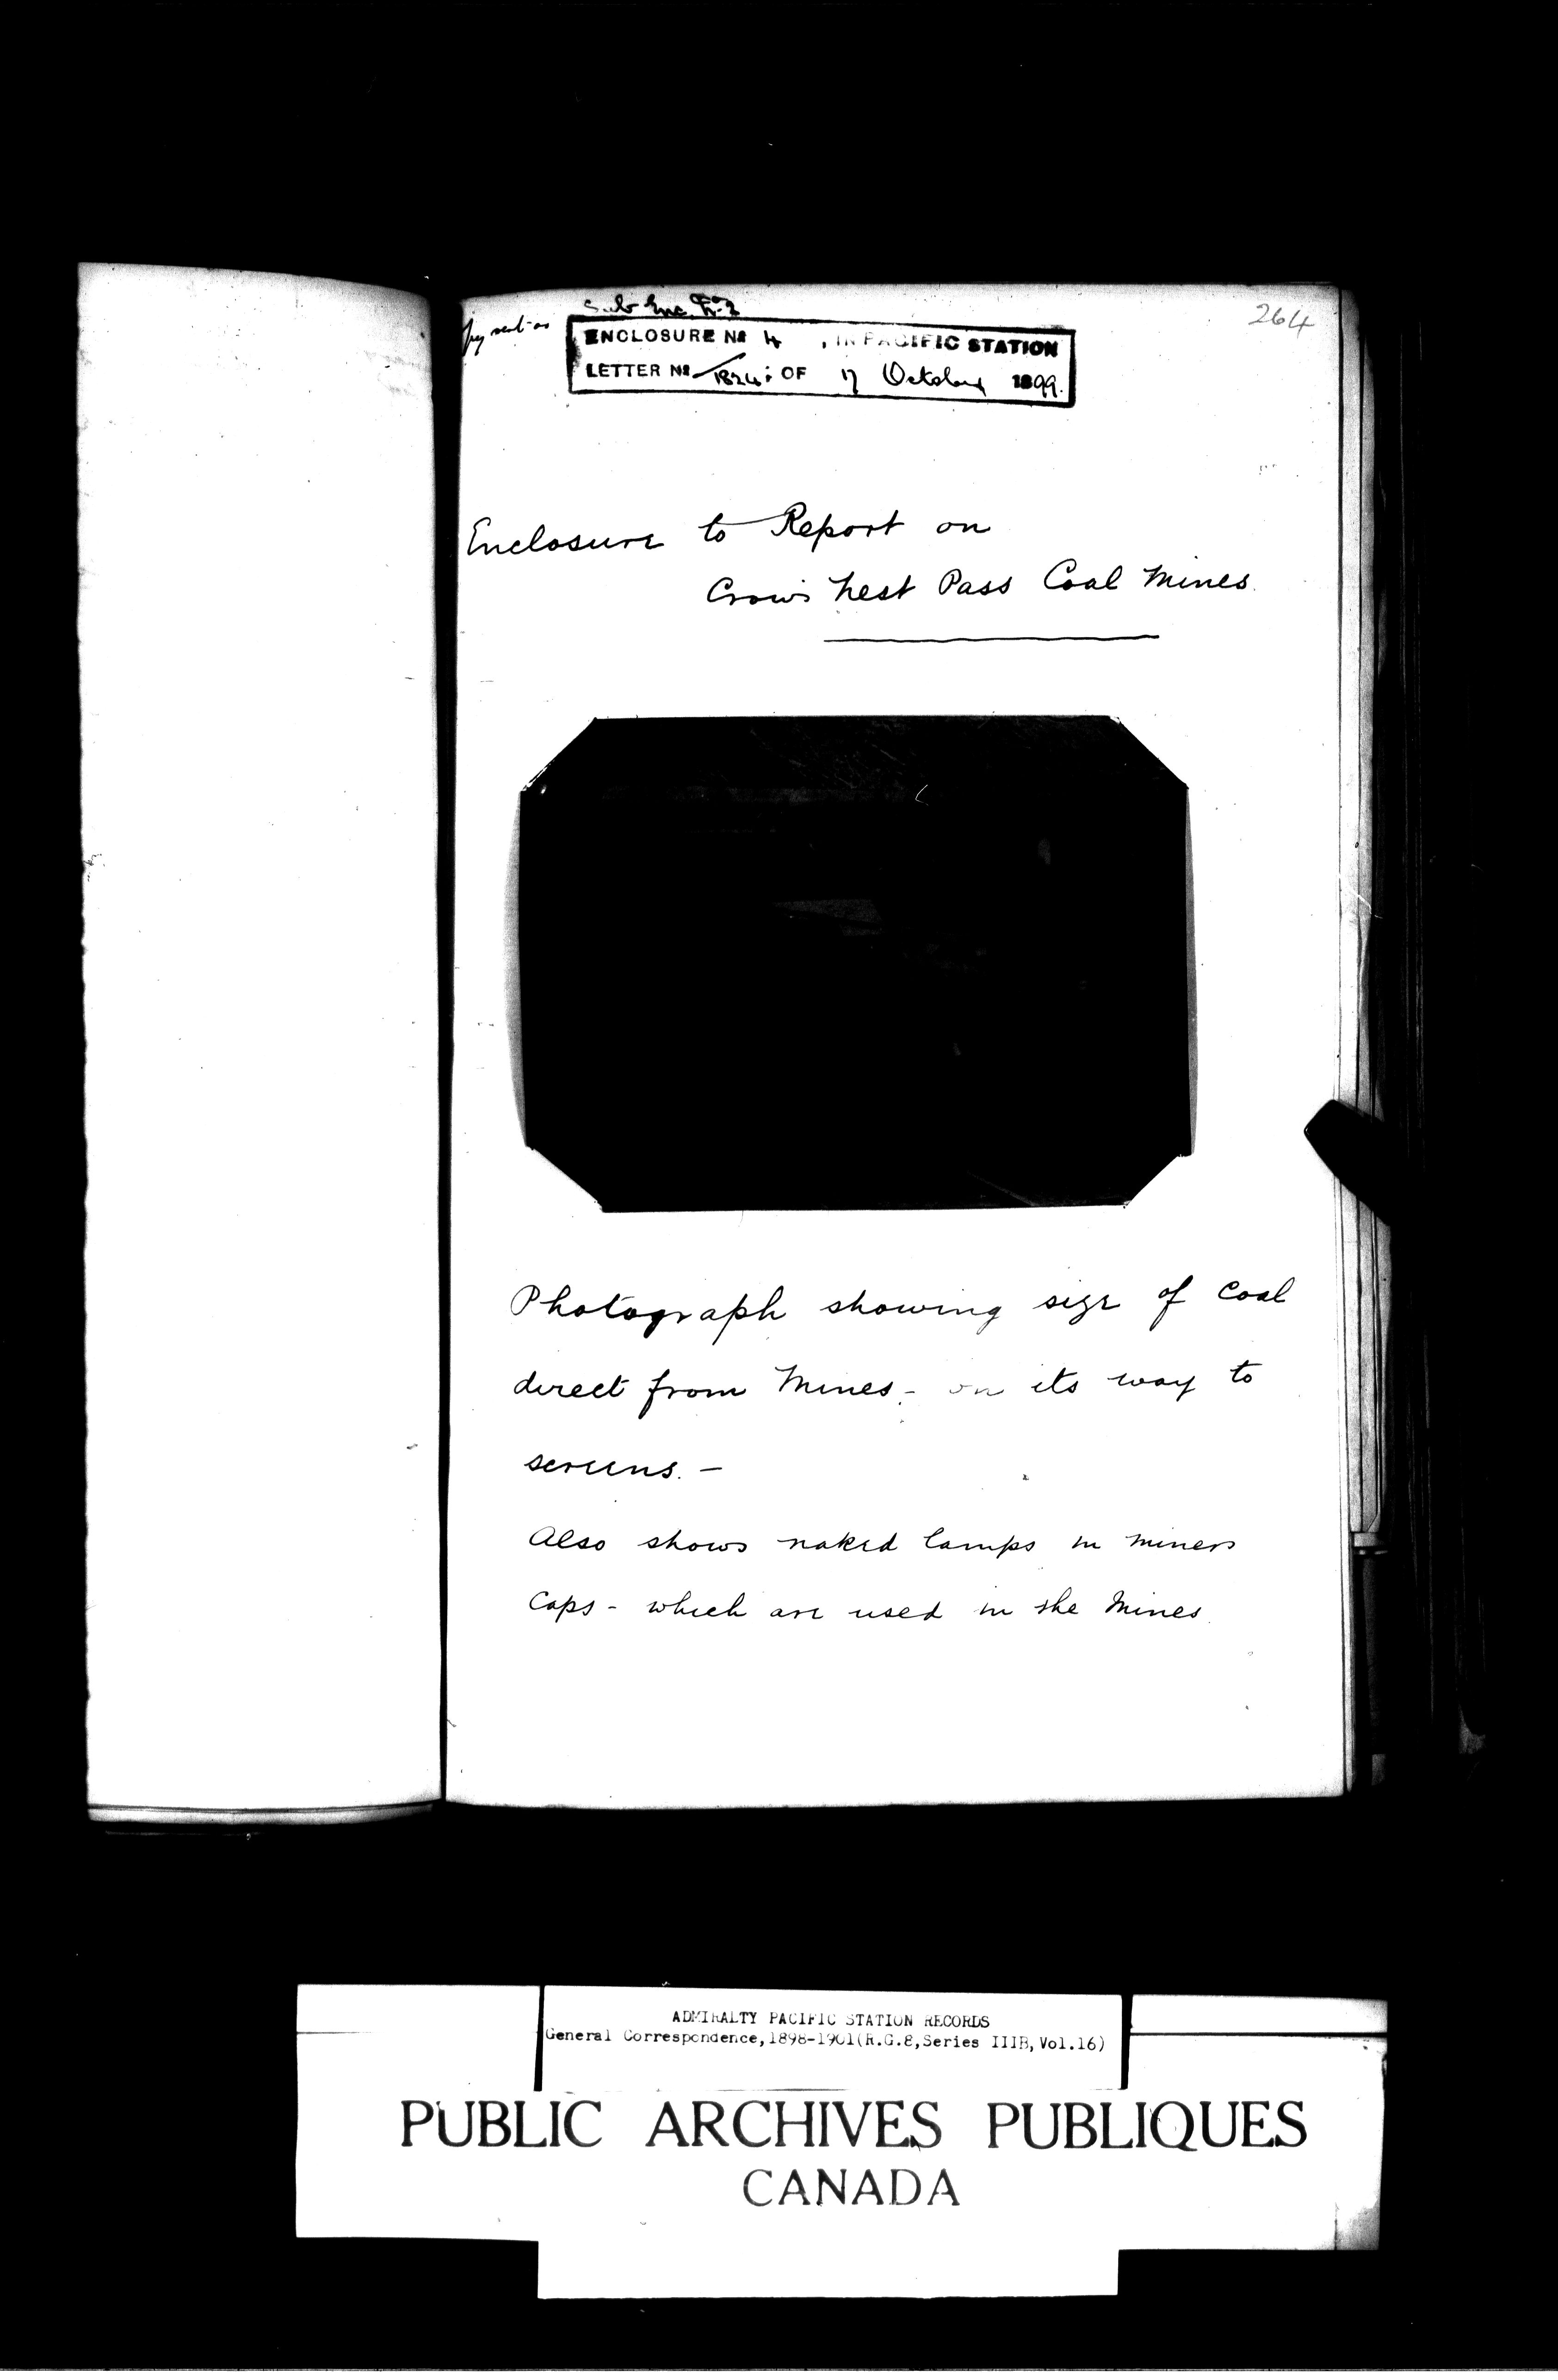 264
Sub Enc No 2
ENCLOSURE No 4, IN PACIFIC STATION
LETTER No 1824: OF 17 October 1899.
Enclosure to Report on
Crow's Nest Pass Coal Mines
Photograph showing size of Coal
direct from Mines - on its way to
screens. -
Also shows naked lamps in miners
Caps - which are used in the Mines.
ADMIRALTY PACIFIC STATION RECORDS
General Correspondence,1898-1901(R.G.8,Series IIIB,Vol.16)
PUBLIC ARCHIVES PUBLIQUES
CANADA